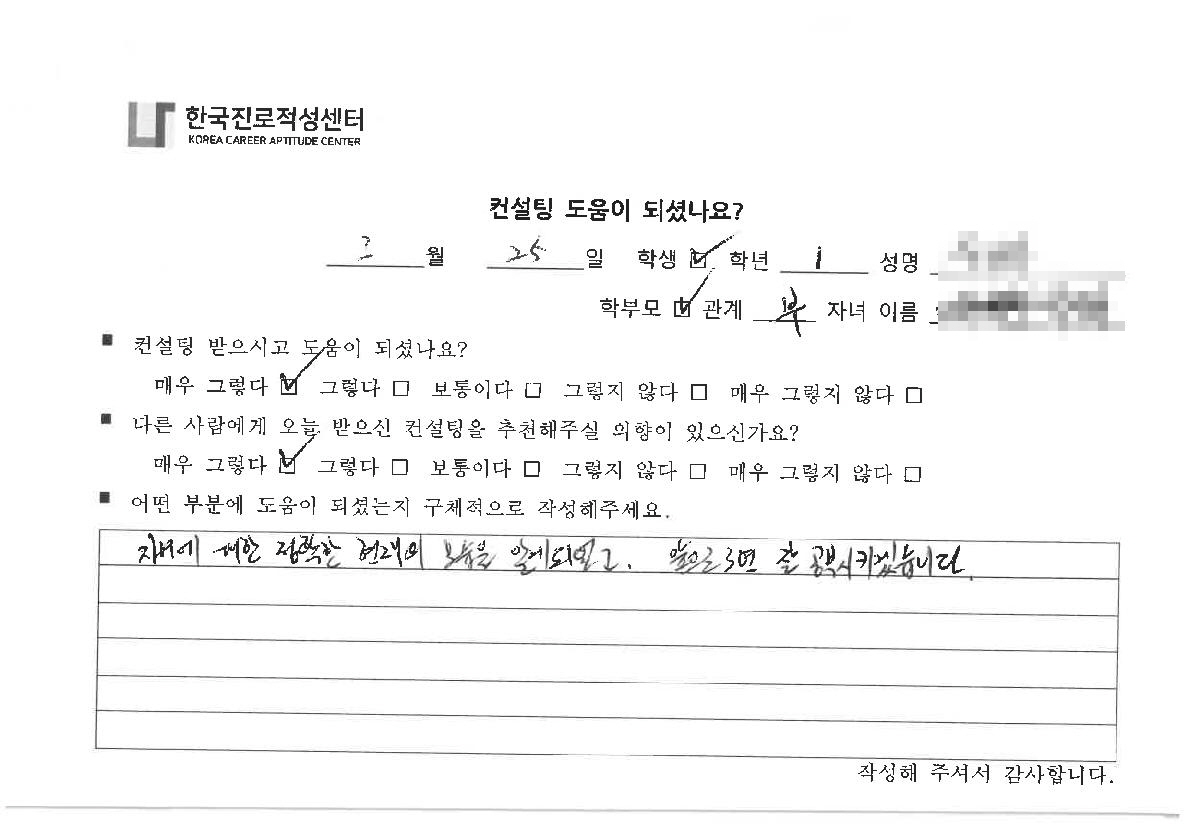 한국진로적성센터
KOREA CAREER APTITUDE CENTER
컨설팅 도움이 되셨나요?
3 월 25 일 학생 ☑ 학년 1 성명
학부모 ☑ 관계 부 자녀 이름
■ 컨설팅 받으시고 도움이 되셨나요?
매우 그렇다 ☑ 그렇다 □ 보통이다 □ 그렇지 않다 □ 매우 그렇지 않다 □
■ 다른 사람에게 오늘 받으신 컨설팅을 추천해주실 의향이 있으신가요?
매우 그렇다 ☑ 그렇다 □ 보통이다 □ 그렇지 않다 □ 매우 그렇지 않다 □
■ 어떤 부분에 도움이 되셨는지 구체적으로 작성해주세요.
자녀에 대한 정확한 현재의 모습을 알게되었고, 앞으로 3년 잘 공부시키겠습니다.
작성해 주셔서 감사합니다.